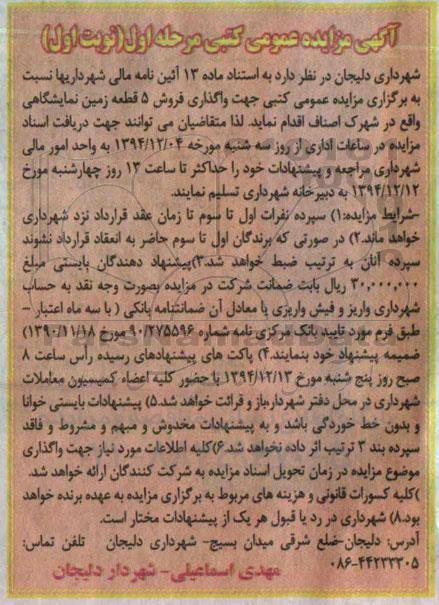 آگهی مزایده عمومی کتبی مرحله اول(نوبت اول)
شهرداری دلیجان در نظر دارد به استناد ماده ۱۳ آئین نامه مالی شهرداریها نسبت
به برگزاری مزایده عمومی کتبی جهت واگذاری فروش ۵ قطعه زمین نمایشگاهی
واقع در شهرک اصناف اقدام نماید. لذا متقاضیان می توانند جهت دریافت اسناد
مزایده در ساعات اداری از روز سه شنبه مورخه ۱۳۹۴/۱۲/۰۴ به واحد امور مالی
شهرداری مراجعه و پیشنهادات خود را حداکثر تا ساعت ۱۳ روز چهارشنبه مورخ
۱۳۹۴/۱۲/۱۲ به دبیرخانه شهرداری تسلیم نمایند.
-شرایط مزایده:۱) سپرده نفرات اول تا سوم تا زمان عقد قرارداد نزد شهرداری
خواهد ماند.۲) در صورتی که برندگان اول تا سوم حاضر به انعقاد قرارداد نشوند
سپرده آنان به ترتیب ضبط خواهد شد.۳)پیشنهاد دهندگان بایستی مبلغ
۳۰,۰۰۰,۰۰۰ ریال بابت ضمانت شرکت در مزایده بصورت وجه نقد به حساب
شهرداری واریز و فیش واریزی یا معادل آن ضمانتنامه بانکی ( با سه ماه اعتبار -
طبق فرم مورد تایید بانک مرکزی نامه شماره ۹۰/۲۷۵۵۹۶ مورخ ۱۳۹۰/۱۱/۱۸)
ضمیمه پیشنهاد خود بنمایند.۴) پاکت های پیشنهادهای رسیده رأس ساعت ۸
صبح روز پنج شنبه مورخ ۱۳۹۴/۱۲/۱۳ با حضور کلیه اعضاء کمیسیون معاملات
شهرداری در محل دفتر شهردار،باز و قرائت خواهد شد.۵) پیشنهادات بایستی خوانا
و بدون خط خوردگی باشد و به پیشنهادات مخدوش و مبهم و مشروط و فاقد
سپرده بند ۳ ترتیب اثر داده نخواهد شد.۶)کلیه اطلاعات مورد نیاز جهت واگذاری
موضوع مزایده در زمان تحویل اسناد مزایده به شرکت کنندگان ارائه خواهد شد.
)کلیه کسورات قانونی و هزینه های مربوط به برگزاری مزایده به عهده برنده خواهد
بود.۸) شهرداری در رد یا قبول هر یک از پیشنهادات مختار است.
آدرس: دلیجان-ضلع شرقی میدان بسیج- شهرداری دلیجان تلفن تماس:
۰۸۶-۴۴۲۳۳۳۰۵
مهدی اسماعیلی- شهردار دلیجان